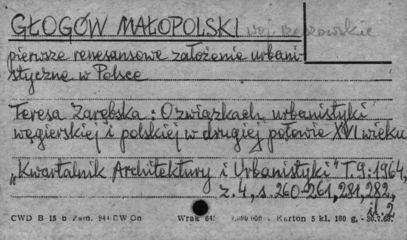 GŁOGÓW MAŁOPOLSKI woj. rzeszowskie
pierwsze renesansowe założenie urbani-
styczne w Polsce
Teresa Zarębska: O związkach urbanistyki
węgierskiej i polskiej w drugiej połowie XVI wieku
„Kwartalnik Architektury i Urbanistyki" T.9:1964,
z.4, s.260-261, 281, 282,
il. 2
CWD B 15 b Zam. CW On Wrak Karton 5 kl. 180 g. - 30.7.63.